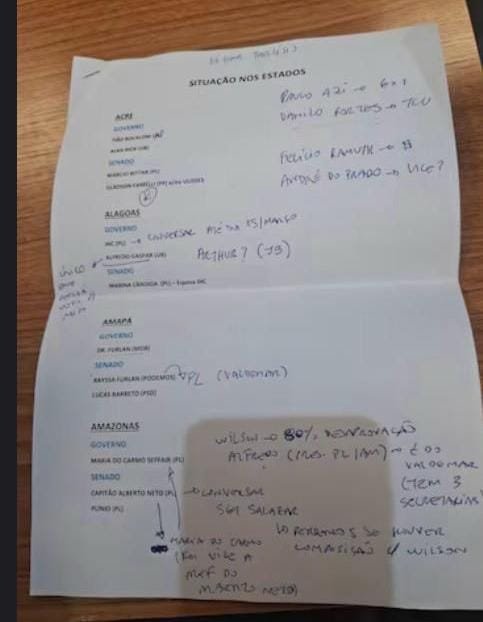 SITUAÇÃO NOS ESTADOS
PAULO AZI → 6x1
DANILO FORTES → TCU
FELÍCIO RAMUTH →
ANDRÉ DO PRADO → VICE?
ACRE
GOVERNO
ALAN RICK (UB)
SENADO
MARCIO BITTAR (PL)
GLADSON CAMELI (PP)
ALAGOAS
GOVERNO
JHC (PL) → CONVERSAR ATÉ DIA 15/MARÇO
ALFREDO GASPAR (UB)
ARTHUR? (JB)
ÚNICO
QUE
SENADO
MARINA CANDIDA (PL) – Esposa JHC
AMAPÁ
GOVERNO
DR. FURLAN (MDB)
SENADO
RAYSSA FURLAN (PODEMOS) → PL (VALDEMAR)
LUCAS BARRETO (PSD)
AMAZONAS
GOVERNO
MARIA DO CARMO SEFFAIR (PL)
SENADO
CAPITÃO ALBERTO NETO (PL)
PLINIO (PL)
WILSON → 80% DESAPROVAÇÃO
ALFREDO (PRES. PL/AM) → É DO
VALDEMAR
(TEM 3
SECRETARIAS)
→ CONVERSAR
SALAZAR
↳ PERDEMOS SE HOUVER
COMPOSIÇÃO C/ WILSON
MARIA DO CARMO
(FOI VICE A
PREF DO
NETO)